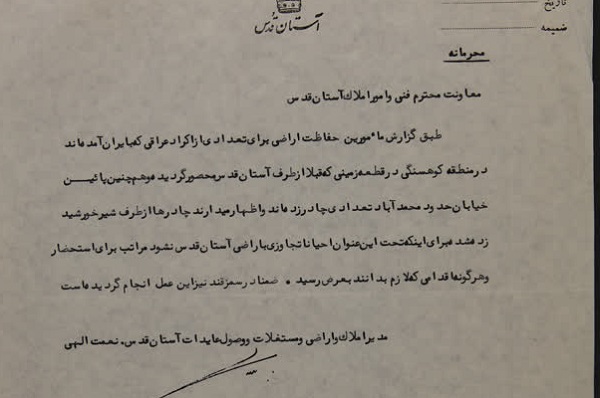 تاریخ
ضمیمه
آستان قدس
محرمانه
معاونت محترم فنی و امور املاک آستان قدس
طبق گزارش مأمورین حفاظت اراضی برای تعدادی از اکراد عراقی که بایران آمده اند
در منطقه کوهسنگی در قطعه زمینی که قبلا از طرف آستان قدس محصور گردیده و همچنین پائین
خیابان حدود محمد آباد تعدادی چادر زده اند و اظهار میدارند چادرها از طرف شیر خورشید
زده شده برای اینکه تحت این عنوان احیانا تجاوزی باراضی آستان قدس نشود مراتب برای استحضار
و هرگونه اقدامی که لازم بدانند بعرض رسید . ضمنا در سمزقند نیز این عمل انجام گردیده است
مدیر املاک و اراضی و مستغلات و وصول عایدات آستان قدس . نعمت الهی